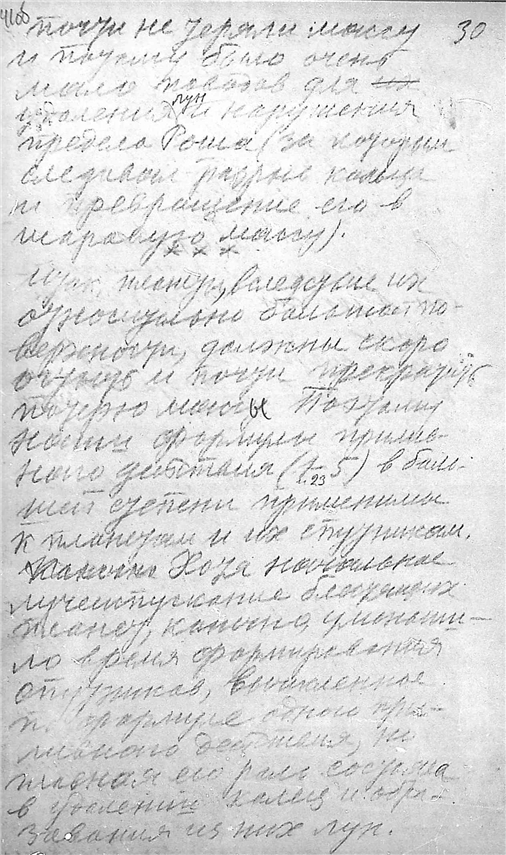 30
почти не теряли массу
и поэтому было очень
мало поводов для
удаления лун и нарушения
предела Роша (за которым
следовал разрыв кольца
и превращение его в
шаровую массу).
* * *
Итак, планеты, вследствие их
относительно большой по-
верхности, должны скоро
остыть и почти прекратить
потерю массы. Поэтому
наши формулы прилив-
ного действия (5) в боль-
шей степени применимы
к планетам и их спутникам.
Хотя начальное
лучеиспускание блестящих
планет, конечно, уменьши-
ло время формирования
спутников, вычисленное
по формуле одного при-
ливного действия, но
главная его роль состояла
в удалении колец и обра-
зования из них лун.